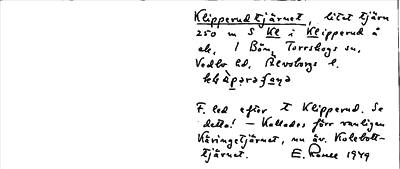 Klipperudtjärnet, litet tjärn
250 m S Kl i Klipperud å
ek, 1 Bön, Torrskogs sn,
Vedbo hd, Älvsborgs l.
F. led efter t Klipperud. Se
detta! — Kallades förr vanligen
Kåvingetjärnet, nu äv. Kolebott-
tjärnet. E. 1949